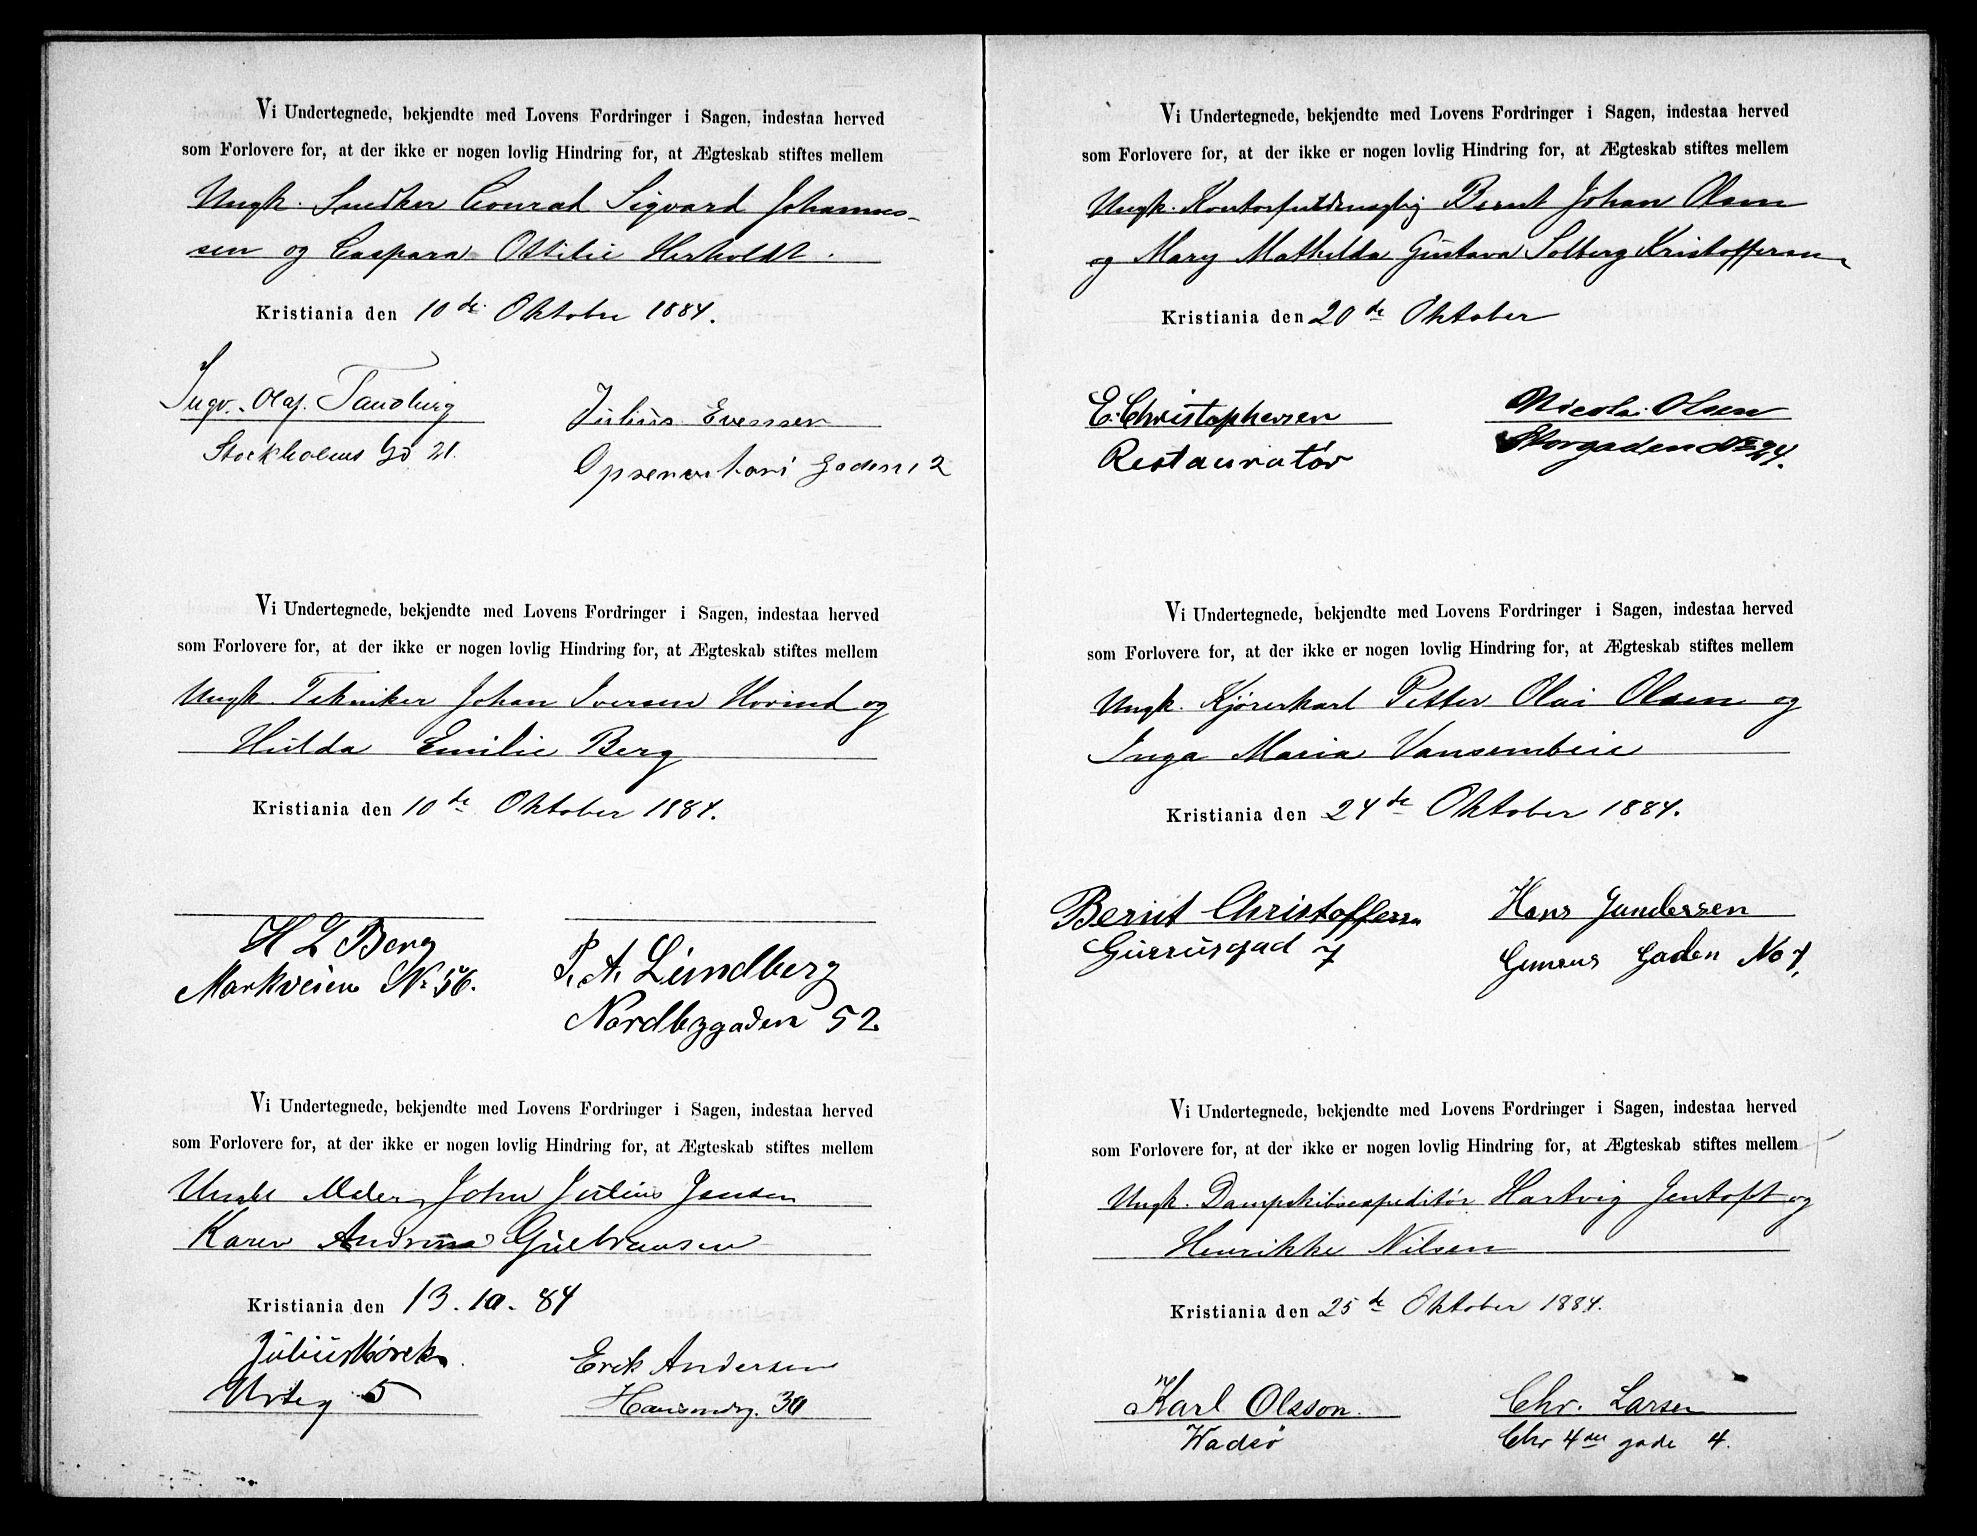 Vi Undertegnede, bekjendte med Lovens Fordringer i Sagen, indestaa herved
som Forlovere for, at der ikke er nogen lovlig Hindring for, at Ægteskab stiftes mellem
Ungk. Snedker Conrad Sigvard Johannes-
sen og Caspara Ottilie Herholdt.
Kristiania den 10de Oktober 1884.
Ingv. Olaf. Tandberg
Stockholms Gd 21.
Julius Evensen
Opservatori Gaden 12
Vi Undertegnede, bekjendte med Lovens Fordringer i Sagen, indestaa herved
som Forlovere for, at der ikke er nogen lovlig Hindring for, at Ægteskab stiftes mellem
Ungk. Tekniker Johan Iversen Hovind og
Hulda Emilie Berg
Kristiania den 10de Oktober 1884.
H L Berg
Markveien No 56.
P. A. Lundberg
Nordbygaden 52
Vi Undertegnede, bekjendte med Lovens Fordringer i Sagen, indestaa herved
som Forlovere for, at der ikke er nogen lovlig Hindring for, at Ægteskab stiftes mellem
Ungk Maler John Julius Jensen
Karen Andrine Gulbransen
Kristiania den 13. 10. 84
Julius Mörck
Urteg 5
Erek Andersen
30
Vi Undertegnede, bekjendte med Lovens Fordringer i Sagen, indestaa herved
som Forlovere for, at der ikke er nogen lovlig Hindring for, at Ægteskab stiftes mellem
Ungk. Kontorfuldmægtig Bernt Johan Olsen
og Mary Mathilda Gustava Solberg Kristoffersen
Kristiania den 20de Oktober
E. Christophersen
Restauratør
Nicolai Olsen
Storgaden No 24.
Vi Undertegnede, bekjendte med Lovens Fordringer i Sagen, indestaa herved
som Forlovere for, at der ikke er nogen lovlig Hindring for, at Ægteskab stiftes mellem
Ungk. Kjørerkarl Petter Olai Olsen og
Inga Maria Vansembeie
Kristiania den 24de Oktober 1884.
Bernt Christoffersen
7
Hans Gundersen
Gaden No 7,
Vi Undertegnede, bekjendte med Lovens Fordringer i Sagen, indestaa herved
som Forlovere for, at der ikke er nogen lovlig Hindring for, at Ægteskab stiftes mellem
Ungk. Dampskibsexpeditør Hartvig Jentoft og
Henrikke Nilsen
Kristiania den 25de Oktober 1884.
Karl Olsson
Wadsø
Chr. Larsen
Chr 4des gade 4.